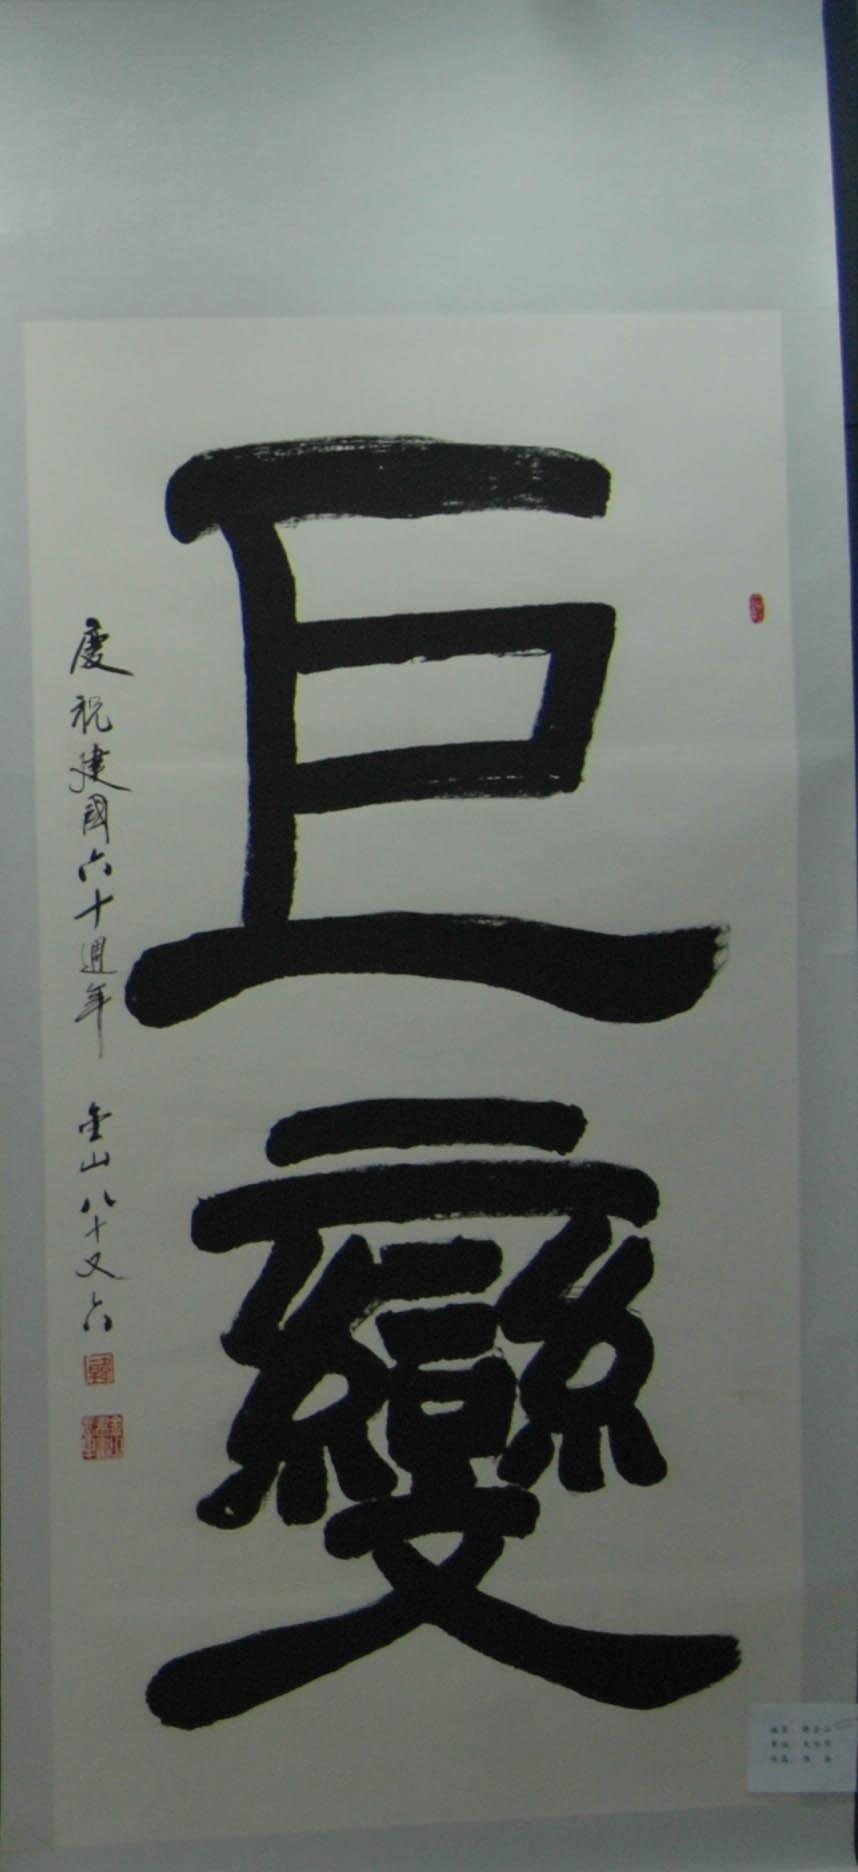 巨變
慶祝建國六十週年 金山八十又六